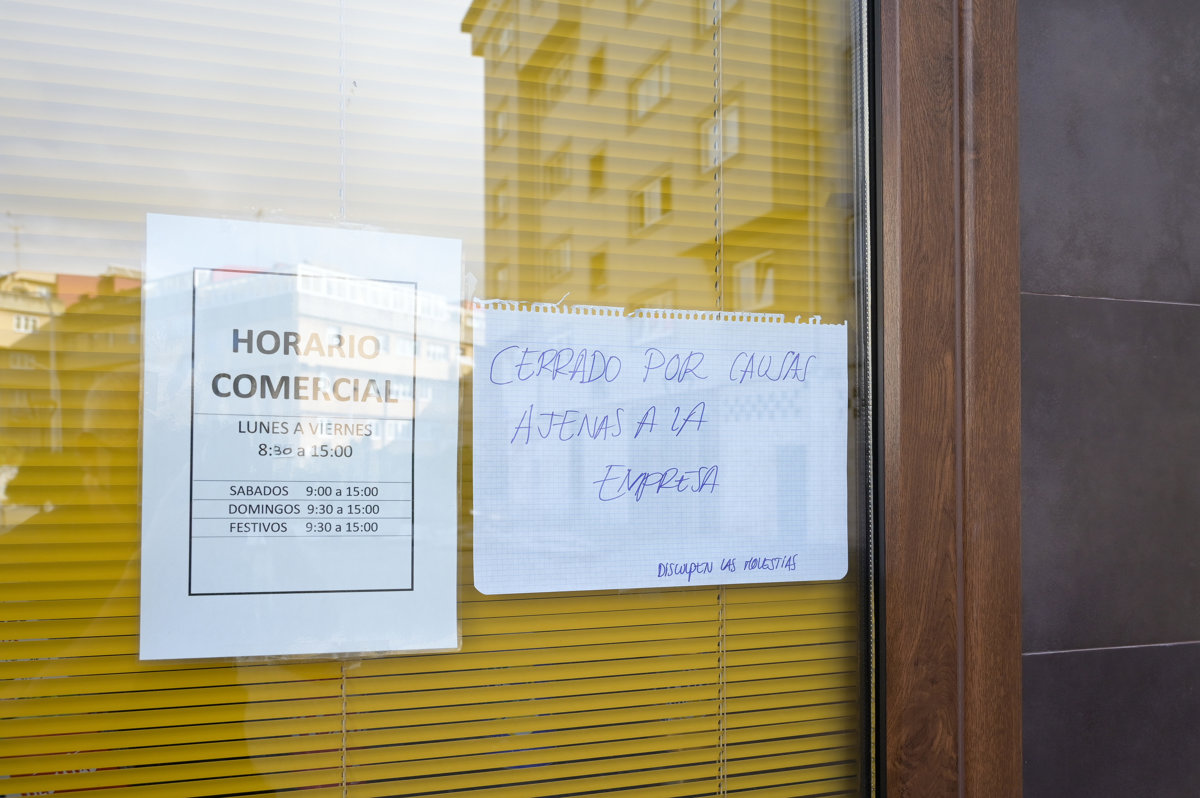 HORARIO
COMERCIAL
LUNES A VIERNES
8:30 a 15:00
SABADOS 9:00 a 15:00
DOMINGOS 9:30 a 15:00
FESTIVOS 9:30 a 15:00
CERRADO POR CAUSAS
AJENAS A LA
EMPRESA
DISCULPEN LAS MOLESTIAS